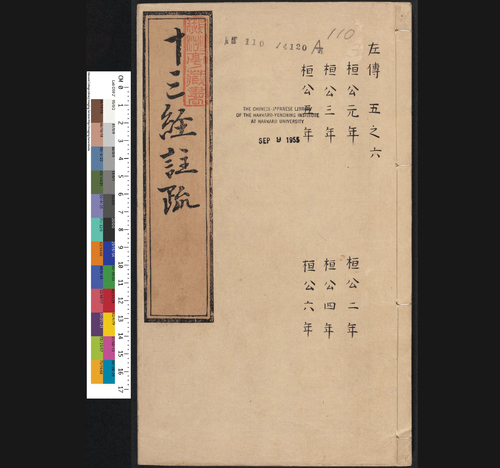 左傳 五之六
桓公元年 桓公二年
桓公三年 桓公四年
桓公五年 桓公六年
110
110 14120
THE CHINESE-JAPANESE LIBRARY
OF THE HARVARD-YENCHING INSTITUTE
AT HARVARD UNIVERSITY
SEP 9 1955
十三經註疏
CM 0 1 2 3 4 5 6 7 8 9 10 11 12 13 14 15 16 17